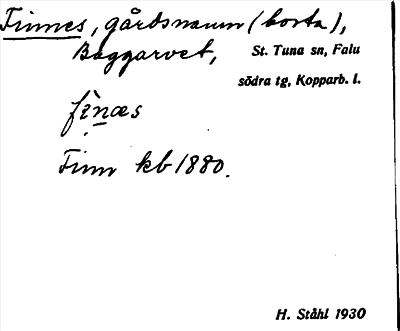 Finnes, gårdsnamn (borta),
Baggarvet, St. Tuna sn, Falu
södra tg, Kopparb. l.
fìnæs
Finn kb 1880.
H. Ståhl 1930